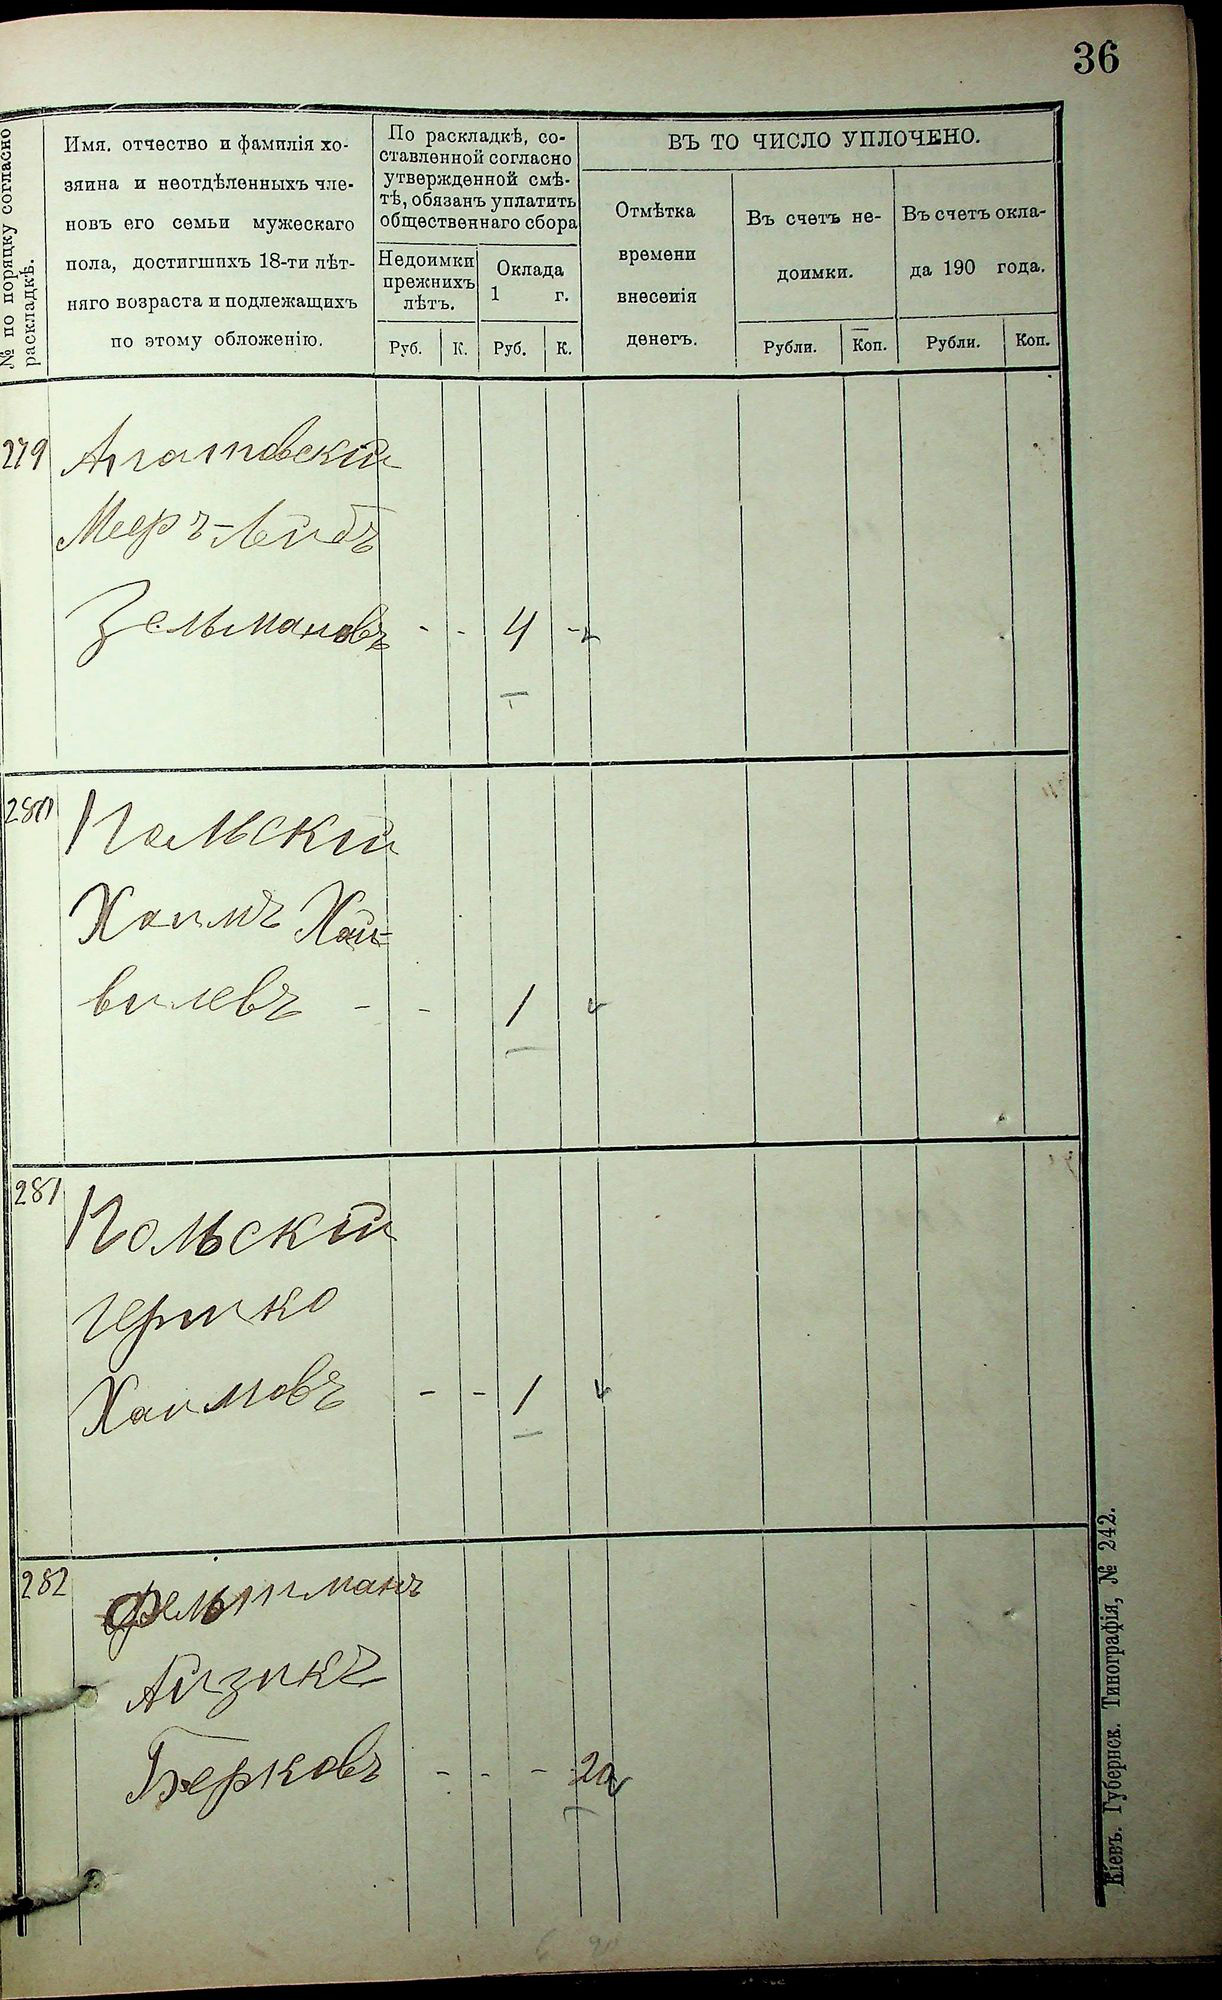 36
№ по порядку согласно раскладкѣ.
Имя, отчество и фамилія хо-
зяина и неотдѣленныхъ чле-
новъ его семьи мужескаго
пола, достигшихъ 18-ти лѣт-
няго возраста и подлежащихъ
по этому обложенію.
По раскладкѣ, со-
ставленной согласно
утвержденной смѣ-
тѣ, обязанъ уплатить
общественнаго сбора
Недоимки
прежнихъ
лѣтъ.
Оклада
1 г.
Руб. К. Руб. К.
ВЪ ТО ЧИСЛО УПЛОЧЕНО.
Отмѣтка
времени
внесенія
денегъ.
Въ счетъ не-
доимки.
Рубли. Коп.
Въ счетъ окла-
да 190 года.
Рубли. Коп.
279
Меръ-Лейбъ
Зельмановъ - - 4 -
280 Польскій
Хаимъ Хай-
вилевъ - - 1
281 Польскій
Гершко
Хаимовъ - - 1
282 Фельтманъ
Айзикъ
Берковъ - - - 20
Кіевъ. Губернск. Типографія, № 242.